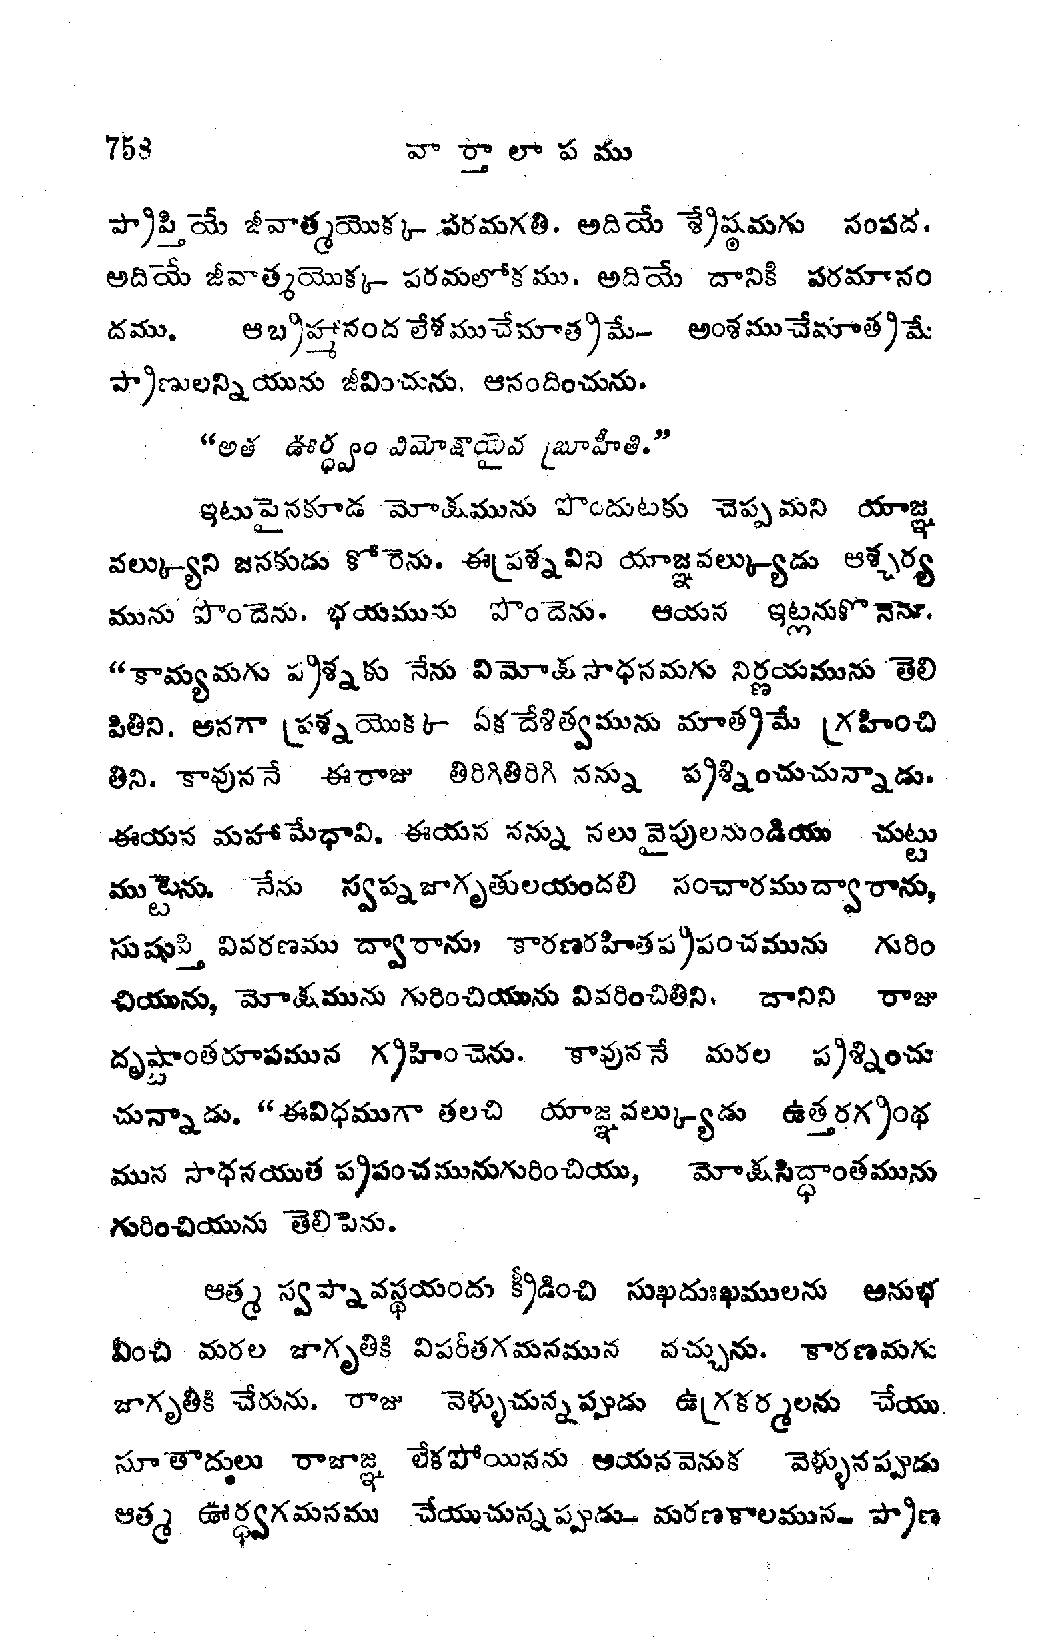 758 వా ర్తా లా ప ము
ప్రాప్తియే జీవాత్మయొక్క పరమగతి. అదియే శ్రేష్ఠమగు సంపద.
అదియే జీవాత్మయొక్క పరమలోకము. అదియే దానికి పరమానం
దము. ఆబ్రహ్మానంద లేశముచేమాత్రమే— అంశముచేమాత్రమే
ప్రాణులన్నియును జీవించును. ఆనందించును.
“అత ఊర్ధ్వం విమోక్షాయైవ బ్రూహీతి.”
ఇటుపైనకూడ మోక్షమును పొందుటకు చెప్పమని యాజ్ఞ
వల్క్యుని జనకుడు కోరెను. ఈప్రశ్నవిని యాజ్ఞవల్క్యుడు ఆశ్చర్య
మును పొందెను. భయమును పొందెను. ఆయన ఇట్లనుకొనెను.
“కామ్యమగు ప్రశ్నకు నేను విమోక్షసాధనమగు నిర్ణయమును తెలి
పితిని. అనగా ప్రశ్నయొక్క ఏకదేశిత్వమును మాత్రమే గ్రహించి
తిని. కావుననే ఈరాజు తిరిగితిరిగి నన్ను ప్రశ్నించుచున్నాడు.
ఈయన మహామేధావి. ఈయన నన్ను నలువైపులనుండియు చుట్టు
ముట్టెను. నేను స్వప్నజాగృతులయందలి సంచారముద్వారాను,
సుషుప్తి వివరణము ద్వారాను, కారణరహితప్రపంచమును గురిం
చియును, మోక్షమును గురించియును వివరించితిని. దానిని రాజు
దృష్టాంతరూపమున గ్రహించెను. కావుననే మరల ప్రశ్నించు
చున్నాడు. “ఈవిధముగా తలచి యాజ్ఞవల్క్యుడు ఉత్తరగ్రంథ
మున సాధనయుత ప్రపంచమునుగురించియు, మోక్షసిద్ధాంతమును
గురించియును తెలిపెను.
ఆత్మ స్వప్నావస్థయందు క్రీడించి సుఖదుఃఖములను అనుభ
వించి మరల జాగృతికి విపరీతగమనమున వచ్చును. కారణమగు
జాగృతికి చేరును. రాజు వెళ్ళుచున్నప్పుడు ఉగ్రకర్మలను చేయు
సూతాదులు రాజాజ్ఞ లేకపోయినను ఆయనవెనుక వెళ్ళునప్పుడు
ఆత్మ ఊర్ధ్వగమనము చేయుచున్నప్పుడు— మరణకాలమున— ప్రాణ